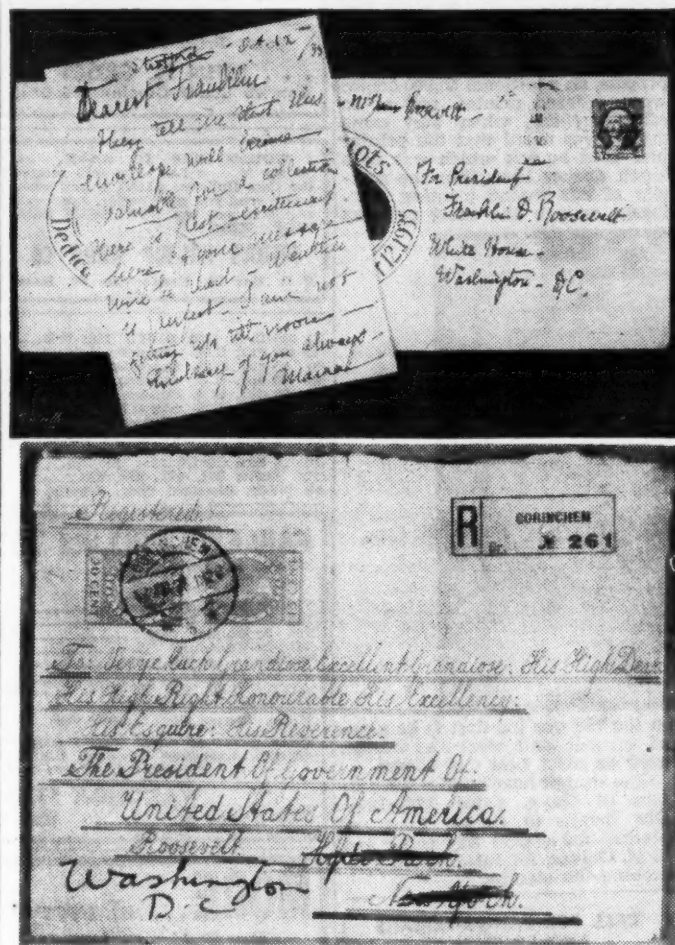 Stratford - Oct. 12 /35
Dearest Franklin
They tell me that this
envelope will become
valuable for a collection
Here is just
here & your message
will be read - Weather
is perfect - I am not
getting up till noon
thinking of you always -
Mama
Dedic
ots
t 12 1935
For President
Franklin D. Roosevelt
White House -
Washington - D.C.
Registered.
R GORINCHEM
Nr. № 261
To: Grandiose. Excellent Grandiose. His High Dear
His High Right Honourable His Excellency:
His Esquire: His Reverence:
The President Of Government Of:
United States Of America:
Roosevelt Hyde Park.
Washington New York.
D.C